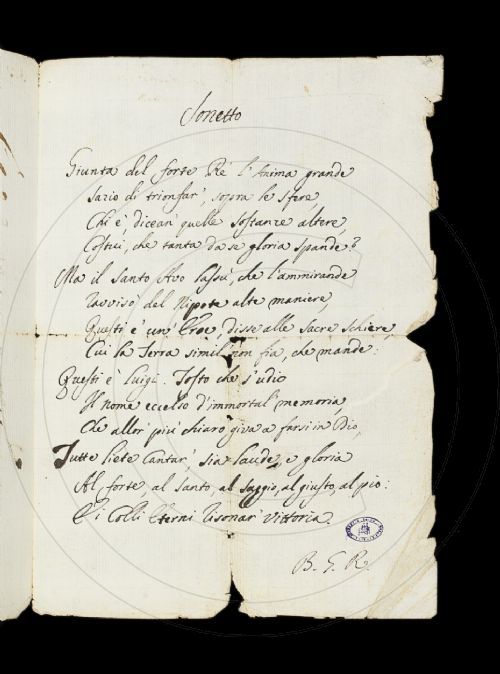 Sonetto
Giunta del forte Rè l'Anima grande
Sazio di trionfar', sopra le sfere,
Chi è, dicean' quelle sostanze altere,
Costui, che tanta da se gloria spande?
Ma il Santo Avo lassù, che l'ammirande
Ravvisò del Nipote alte maniere,
Questi è un' Eroe, disse alle Sacre Schiere,
Cui la Terra simil non fia, che mande:
Questi è Luigi. Tosto che s'udio
Il nome eccelso d'immortal' memoria,
Che allor' più chiaro giva a farsi in Dio,
Tutte liete Cantar', sia laude, e gloria
Al forte, al Santo, al Saggio, al giusto, al pio:
E i Colli Eterni Risonar' Vittoria.
B. G. R.